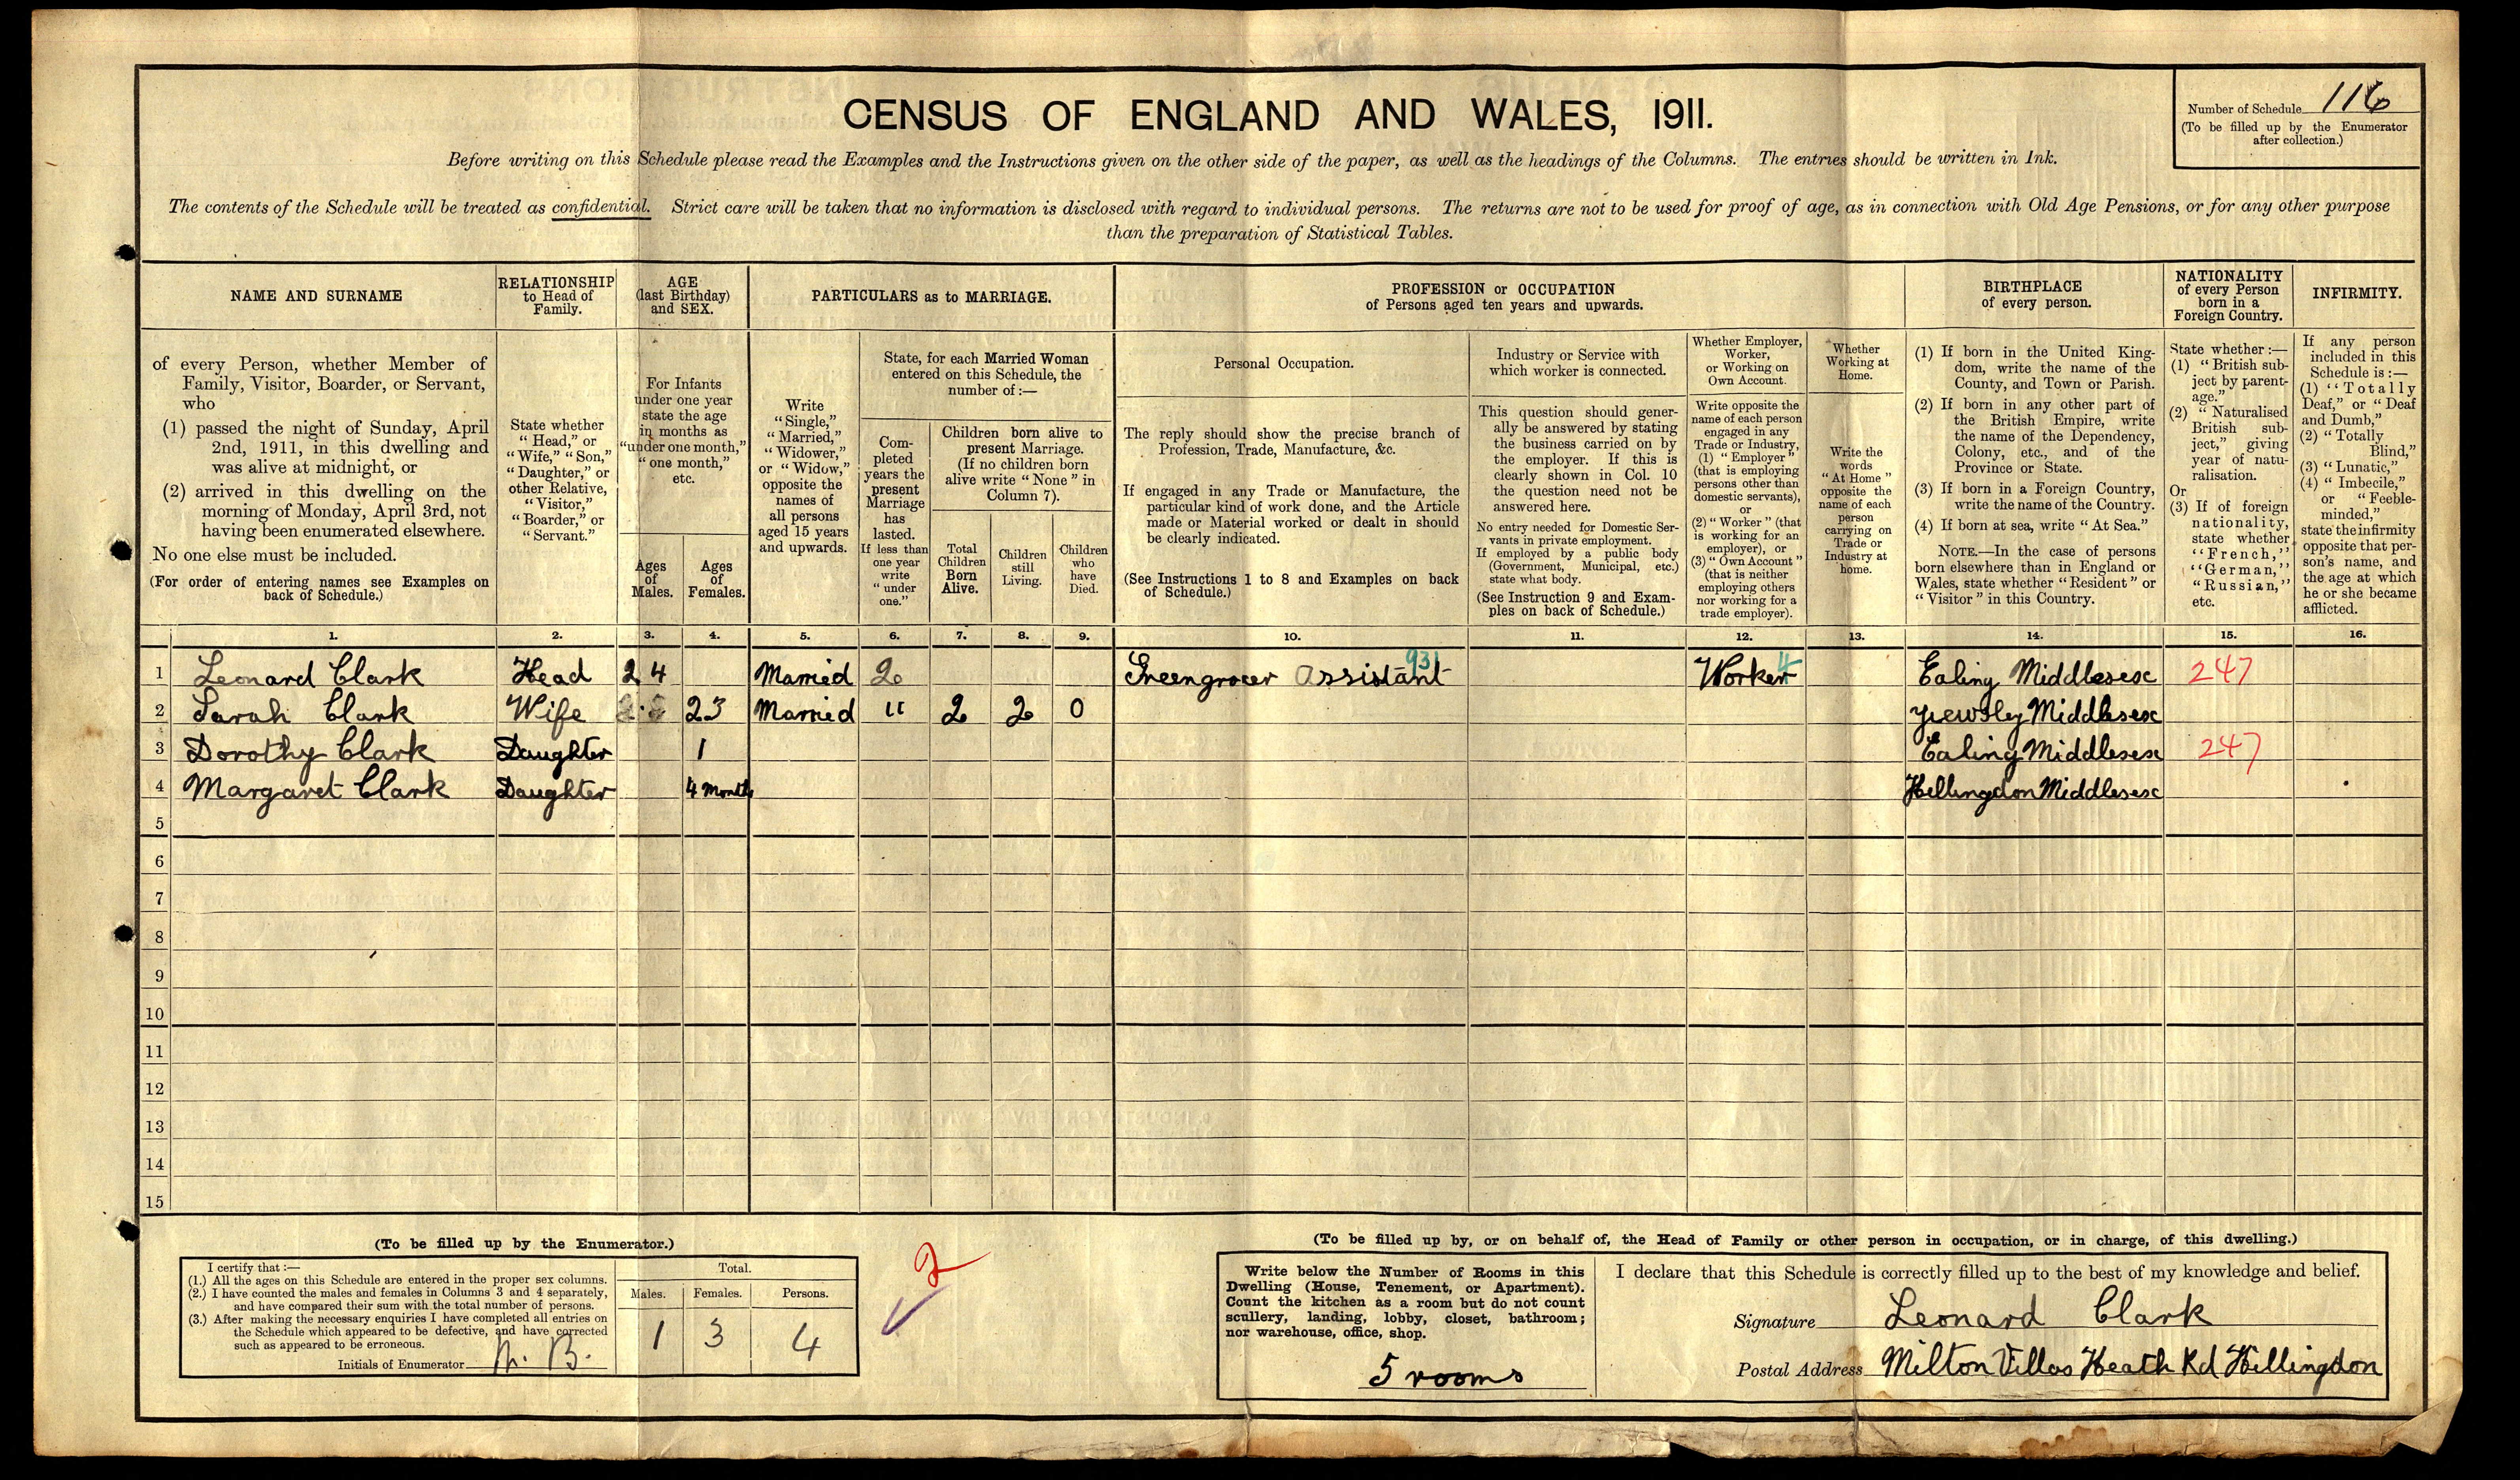 CENSUS OF ENGLAND AND WALES, 1911.
Number of Schedule 116
(To be filled up by the Enumerator
after collection.)
Before writing on this Schedule please read the Examples and the Instructions given on the other side of the paper, as well as the headings of the Columns. The entries should be written in Ink.
The contents of the Schedule will be treated as confidential. Strict care will be taken that no information is disclosed with regard to individual persons. The returns are not to be used for proof of age, as in connection with Old Age Pensions, or for any other purpose
than the preparation of Statistical Tables.
NAME AND SURNAME
of every Person, whether Member of
Family, Visitor, Boarder, or Servant,
who
(1) passed the night of Sunday, April
2nd, 1911, in this dwelling and
was alive at midnight, or
(2) arrived in this dwelling on the
morning of Monday, April 3rd, not
having been enumerated elsewhere.
No one else must be included.
(For order of entering names see Examples on
back of Schedule.)
RELATIONSHIP
to Head of
Family.
State whether
"Head," or
"Wife," "Son,"
"Daughter," or
other Relative,
"Visitor,"
"Boarder," or
"Servant."
AGE
(last Birthday)
and SEX.
For Infants
under one year
state the age
in months as
"under one month,"
"one month,"
etc.
Ages
of
Males.
Ages
of
Females.
PARTICULARS as to MARRIAGE.
Write
"Single,"
"Married,"
"Widower,"
or "Widow,"
opposite the
names of
all persons
aged 15 years
and upwards.
State, for each Married Woman
entered on this Schedule, the
number of:—
Com-
pleted
years the
present
Marriage
has
lasted.
If less than
one year
write
"under
one."
Children born alive to
present Marriage.
(If no children born
alive write "None" in
Column 7).
Total
Children
Born
Alive.
Children
still
Living.
Children
who
have
Died.
PROFESSION or OCCUPATION
of Persons aged ten years and upwards.
Personal Occupation.
The reply should show the precise branch of
Profession, Trade, Manufacture, &c.
If engaged in any Trade or Manufacture, the
particular kind of work done, and the Article
made or Material worked or dealt in should
be clearly indicated.
(See Instructions 1 to 8 and Examples on back
of Schedule.)
Industry or Service with
which worker is connected.
This question should gener-
ally be answered by stating
the business carried on by
the employer. If this is
clearly shown in Col. 10
the question need not be
answered here.
No entry needed for Domestic Ser-
vants in private employment.
If employed by a public body
(Government, Municipal, etc.)
state what body.
(See Instruction 9 and Exam-
ples on back of Schedule.)
Whether Employer,
Worker,
or Working on
Own Account.
Write opposite the
name of each person
engaged in any
Trade or Industry,
(1) "Employer"
(that is employing
persons other than
domestic servants),
or
(2) "Worker" (that
is working for an
employer), or
(3) "Own Account"
(that is neither
employing others
nor working for a
trade employer).
Whether
Working at
Home.
Write the
words
"At Home"
opposite the
name of each
person
carrying on
Trade or
Industry at
home.
BIRTHPLACE
of every person.
(1) If born in the United King-
dom, write the name of the
County, and Town or Parish.
(2) If born in any other part of
the British Empire, write
the name of the Dependency,
Colony, etc., and of the
Province or State.
(3) If born in a Foreign Country,
write the name of the Country.
(4) If born at sea, write "At Sea."
NOTE.—In the case of persons
born elsewhere than in England or
Wales, state whether "Resident" or
"Visitor" in this Country.
NATIONALITY
of every Person
born in a
Foreign Country.
State whether:—
(1) "British sub-
ject by parent-
age."
(2) "Naturalised
British sub-
ject," giving
year of natu-
ralisation.
Or
(3) If of foreign
nationality,
state whether
"French,"
"German,"
"Russian,"
etc.
INFIRMITY.
If any person
included in this
Schedule is:—
(1) "Totally
Deaf," or "Deaf
and Dumb,"
(2) "Totally
Blind,"
(3) "Lunatic,"
(4) "Imbecile,"
or "Feeble-
minded,"
state the infirmity
opposite that per-
son's name, and
the age at which
he or she became
afflicted.
1. 2. 3. 4. 5. 6. 7. 8. 9. 10. 11. 12. 13. 14. 15. 16.
1 Leonard Clark Head 24 Married 2 Greengrocer Assistant 931 Worker 4 Ealing Middlesex 247
2 Sarah Clark Wife 23 Married " 2 2 0 Yiewsley Middlesex
3 Dorothy Clark Daughter 1 Ealing Middlesex 247
4 Margaret Clark Daughter 4 Months Hillingdon Middlesex
5
6
7
8
9
10
11
12
13
14
15
(To be filled up by the Enumerator.)
I certify that:—
(1.) All the ages on this Schedule are entered in the proper sex columns.
(2.) I have counted the males and females in Columns 3 and 4 separately,
and have compared their sum with the total number of persons.
(3.) After making the necessary enquiries I have completed all entries on
the Schedule which appeared to be defective, and have corrected
such as appeared to be erroneous.
Initials of Enumerator
Total.
Males. Females. Persons.
1 3 4
2
(To be filled up by, or on behalf of, the Head of Family or other person in occupation, or in charge, of this dwelling.)
Write below the Number of Rooms in this
Dwelling (House, Tenement, or Apartment).
Count the kitchen as a room but do not count
scullery, landing, lobby, closet, bathroom;
nor warehouse, office, shop.
5 rooms
I declare that this Schedule is correctly filled up to the best of my knowledge and belief.
Signature Leonard Clark
Postal Address Milton Villas Heath Rd Hillingdon